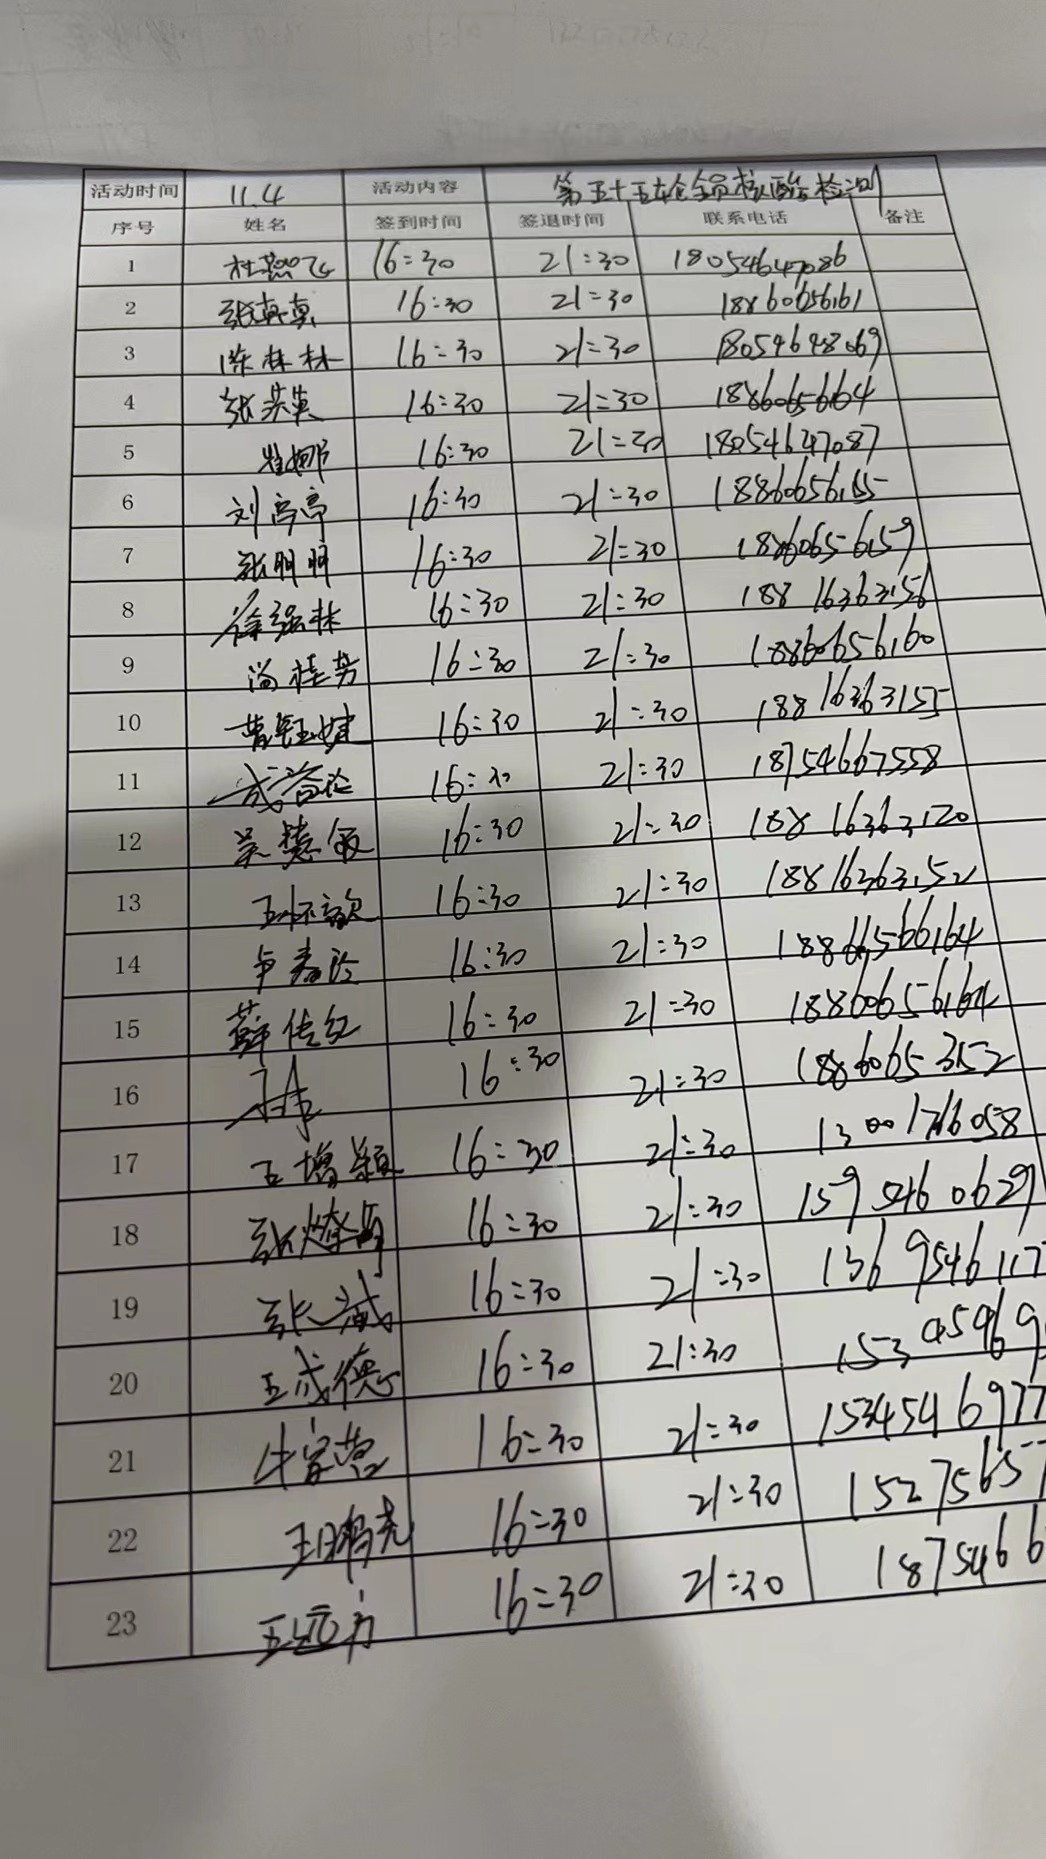 活动时间 11.4 活动内容 第五十五轮全员核酸检测
序号 姓名 签到时间 签退时间 联系电话 备注
1 16:30 21:30 18054647086
2 16:30 21:30 18860656161
3 陈林林 16:30 21:30 18054648069
4 张英英 16:30 21:30 18860656164
5 崔娜 16:30 21:30 18054647087
6 刘亭亭 16:30 21:30 18860656165
7 张明明 16:30 21:30 18860656159
8 徐强林 16:30 21:30 18816363156
9 尚桂芳 16:30 21:30 18860656160
10 16:30 21:30 18816363155
11 16:30 21:30 18754667558
12 吴慧敏 16:30 21:30 18816363120
13 王怀歆 16:30 21:30 18816363152
14 16:30 21:30
15 薛传红 16:30 21:30 18860656164
16 16:30 21:30 18860653152
17 王增颖 16:30 21:30
18 16:30 21:30 15954606291
19 张斌 16:30 21:30 1369546117
20 王成德 16:30 21:30
21 16:30 21:30 1534546977
22 王鹏尧 16:30 21:30 15275657
23 王远方 16:30 21:30 1875466